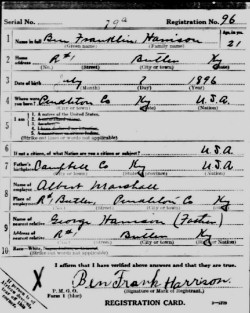 Serial No. 79a Registration No. 96
1 Name in full Ben Franklin Harrison Age, in yrs. 21
(Given name) (Family name)
2 Home address R#1 Butler Ky
(No.) (Street) (City or town) (State)
3 Date of birth July 7 1896
(Month) (Day) (Year)
4 Where were you born? Pendleton Co Ky U.S.A.
(City or town) (State) (Nation)
5 I am
1. A native of the United States.
6 If not a citizen, of what Nation are you a citizen or subject? U.S.A
7 Father's birthplace Campbell Co Ky U.S.A
(City or town) (State) (Nation)
8 Name of employer Albert Marshall
Place of employment R#1 Butler, Pendleton Co Ky
(No.) (Street) (City or town) (State)
9 Name of nearest relative George Harrison (Father)
Address of nearest relative R#1 Butler Ky
(No.) (Street) (City or town) (State or nation)
10 Race—White
I affirm that I have verified above answers and that they are true.
X Ben Frank Harrison.
P. M. G. O.
Form 1 (blue)
(Signature or Mark of Registrant.)
REGISTRATION CARD.